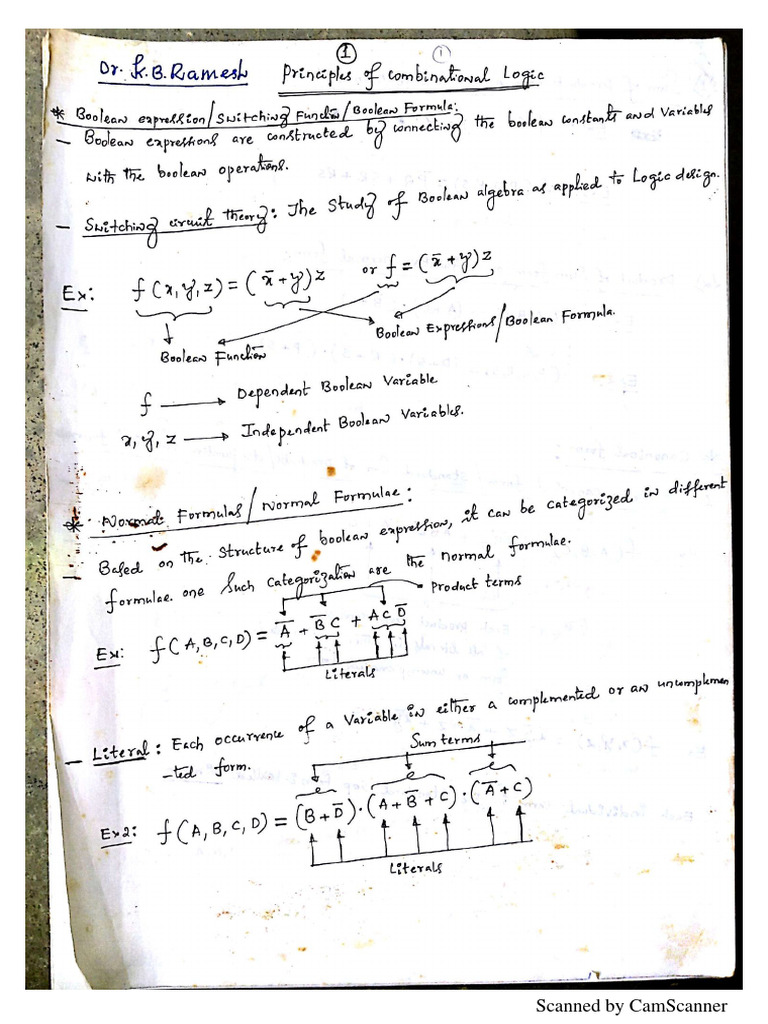 1 1
Dr. K.B. Ramesh Principles of Combinational Logic
* Boolean expression/Switching Function/Boolean Formula:
– Boolean expressions are constructed by connecting the boolean constants and Variables
with the boolean operations.
– Switching circuit theory: The Study of Boolean algebra as applied to Logic design.
Ex: f(x,y,z) = (x̄+y)z or f = (x̄+y)z
Boolean Function Boolean Expressions/Boolean Formula.
f → Dependent Boolean Variable
x, y, z → Independent Boolean Variables.
* Normal Formulas/Normal Formulae:
– Based on the structure of boolean expression, it can be categorized in different
formulae. one such categorization are the normal formulae.
Product terms
Ex: f(A,B,C,D) = A̅ + B̅ C + A C D̅
Literals
– Literal: Each occurrence of a Variable in either a complemented or an uncomplemen
-ted form.
Sum terms
Ex2: f(A,B,C,D) = (B+D̅)·(A+B̅+C)·(A̅+C)
Literals
Scanned by CamScanner